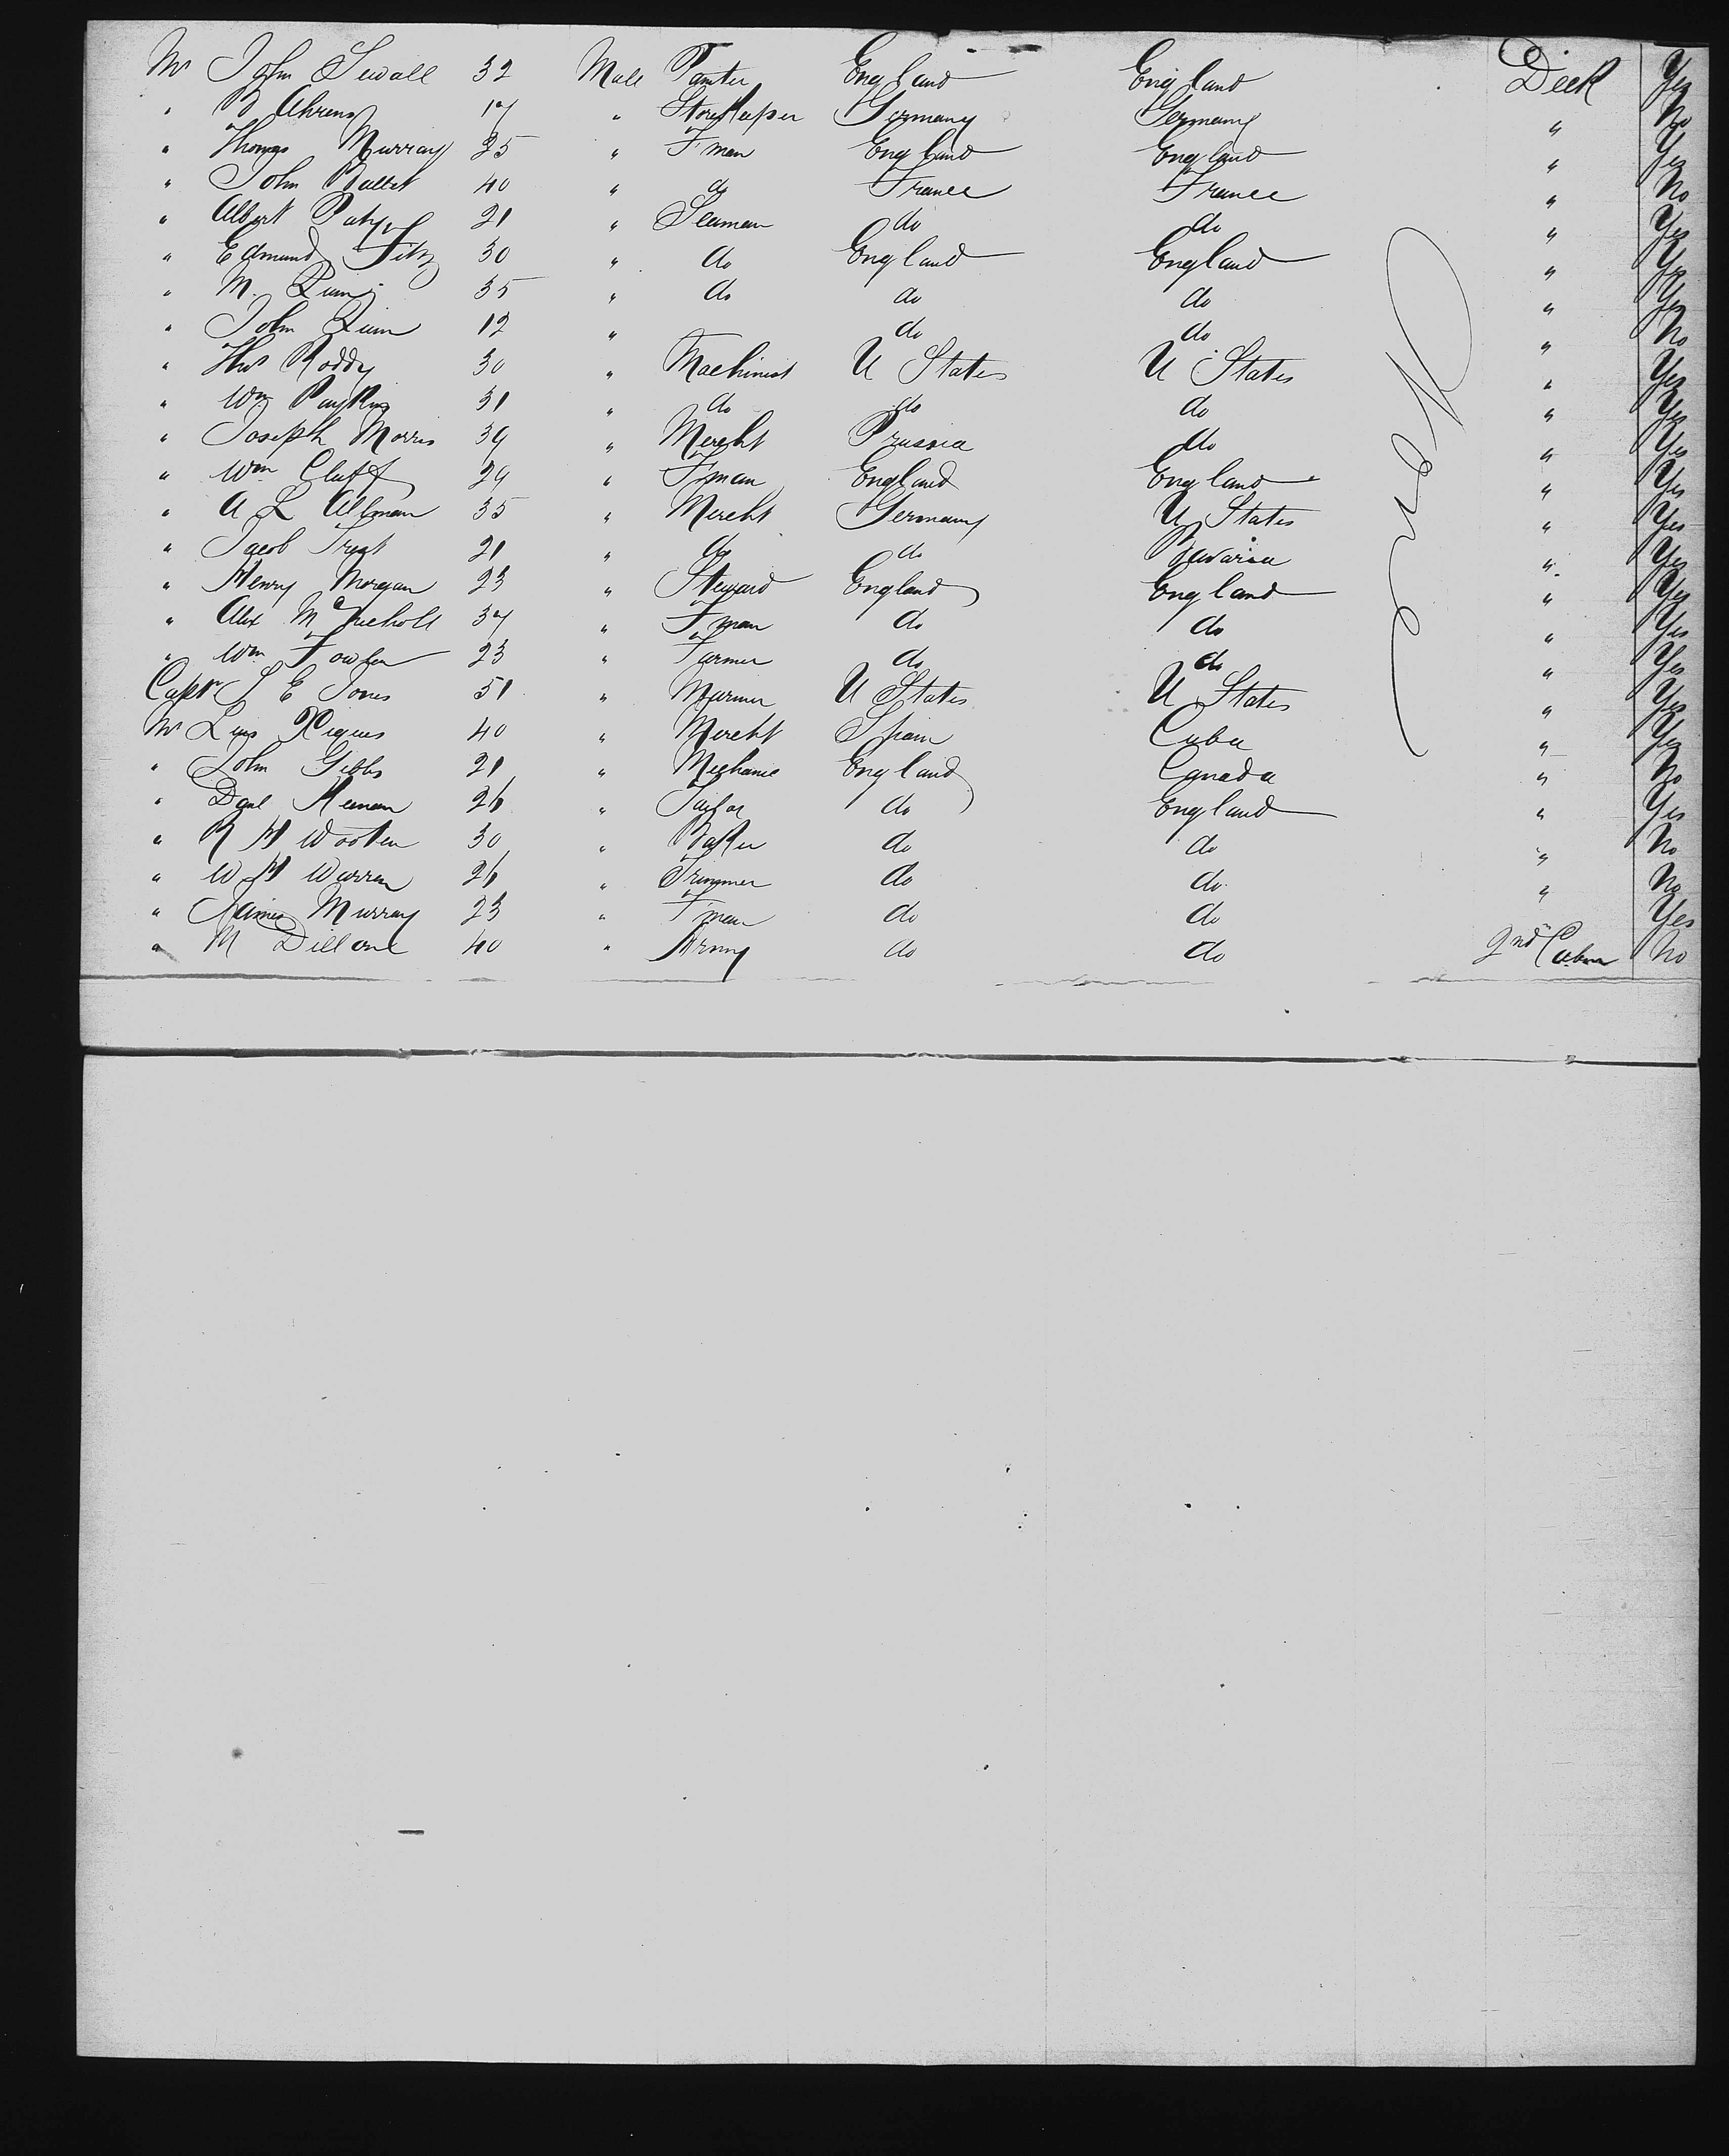 Mr John Sewall 32 Male Painter England England Deck Yes
" B Ahrens 17 " Storekeeper Germany Germany " No
" Thomas Murray 25 " F man England England " Yes
" John 40 " do France France " No
" Albert 21 " Seaman do do " Yes
" Edmund Fitz 30 " do England England " Yes
" M. Quin 35 " do do do " Yes
" John Quin 12 " do do " No
" Thos Roddy 30 " Machinist U States U States " Yes
" Wm 31 " do do do " Yes
" Joseph Morris 39 " Mercht Prussia do " Yes
" Wm Cluff 29 " F man England England " Yes
" A L Allman 35 " Mercht Germany U States " Yes
" Jacob 21 " do do Bavaria " Yes
" Henry Morgan 23 " Steward England England " Yes
" Alex McNicholl 37 " F man do do " Yes
" Wm Fowler 23 " Farmer do do " Yes
Capt E Jones 51 " Mariner U States U States " Yes
Mr Luis 40 " Mercht Spain Cuba " Yes
" John Gibbs 21 " Mechanic England Canada " No
" Danl 26 " Tailor do England " Yes
" R H Wooten 30 " Baker do do " No
" W H Warren 26 " Trimmer do do " No
" James Murray 23 " F man do do Yes
" M Dillone 40 " Army do do 2nd Cabin No
None